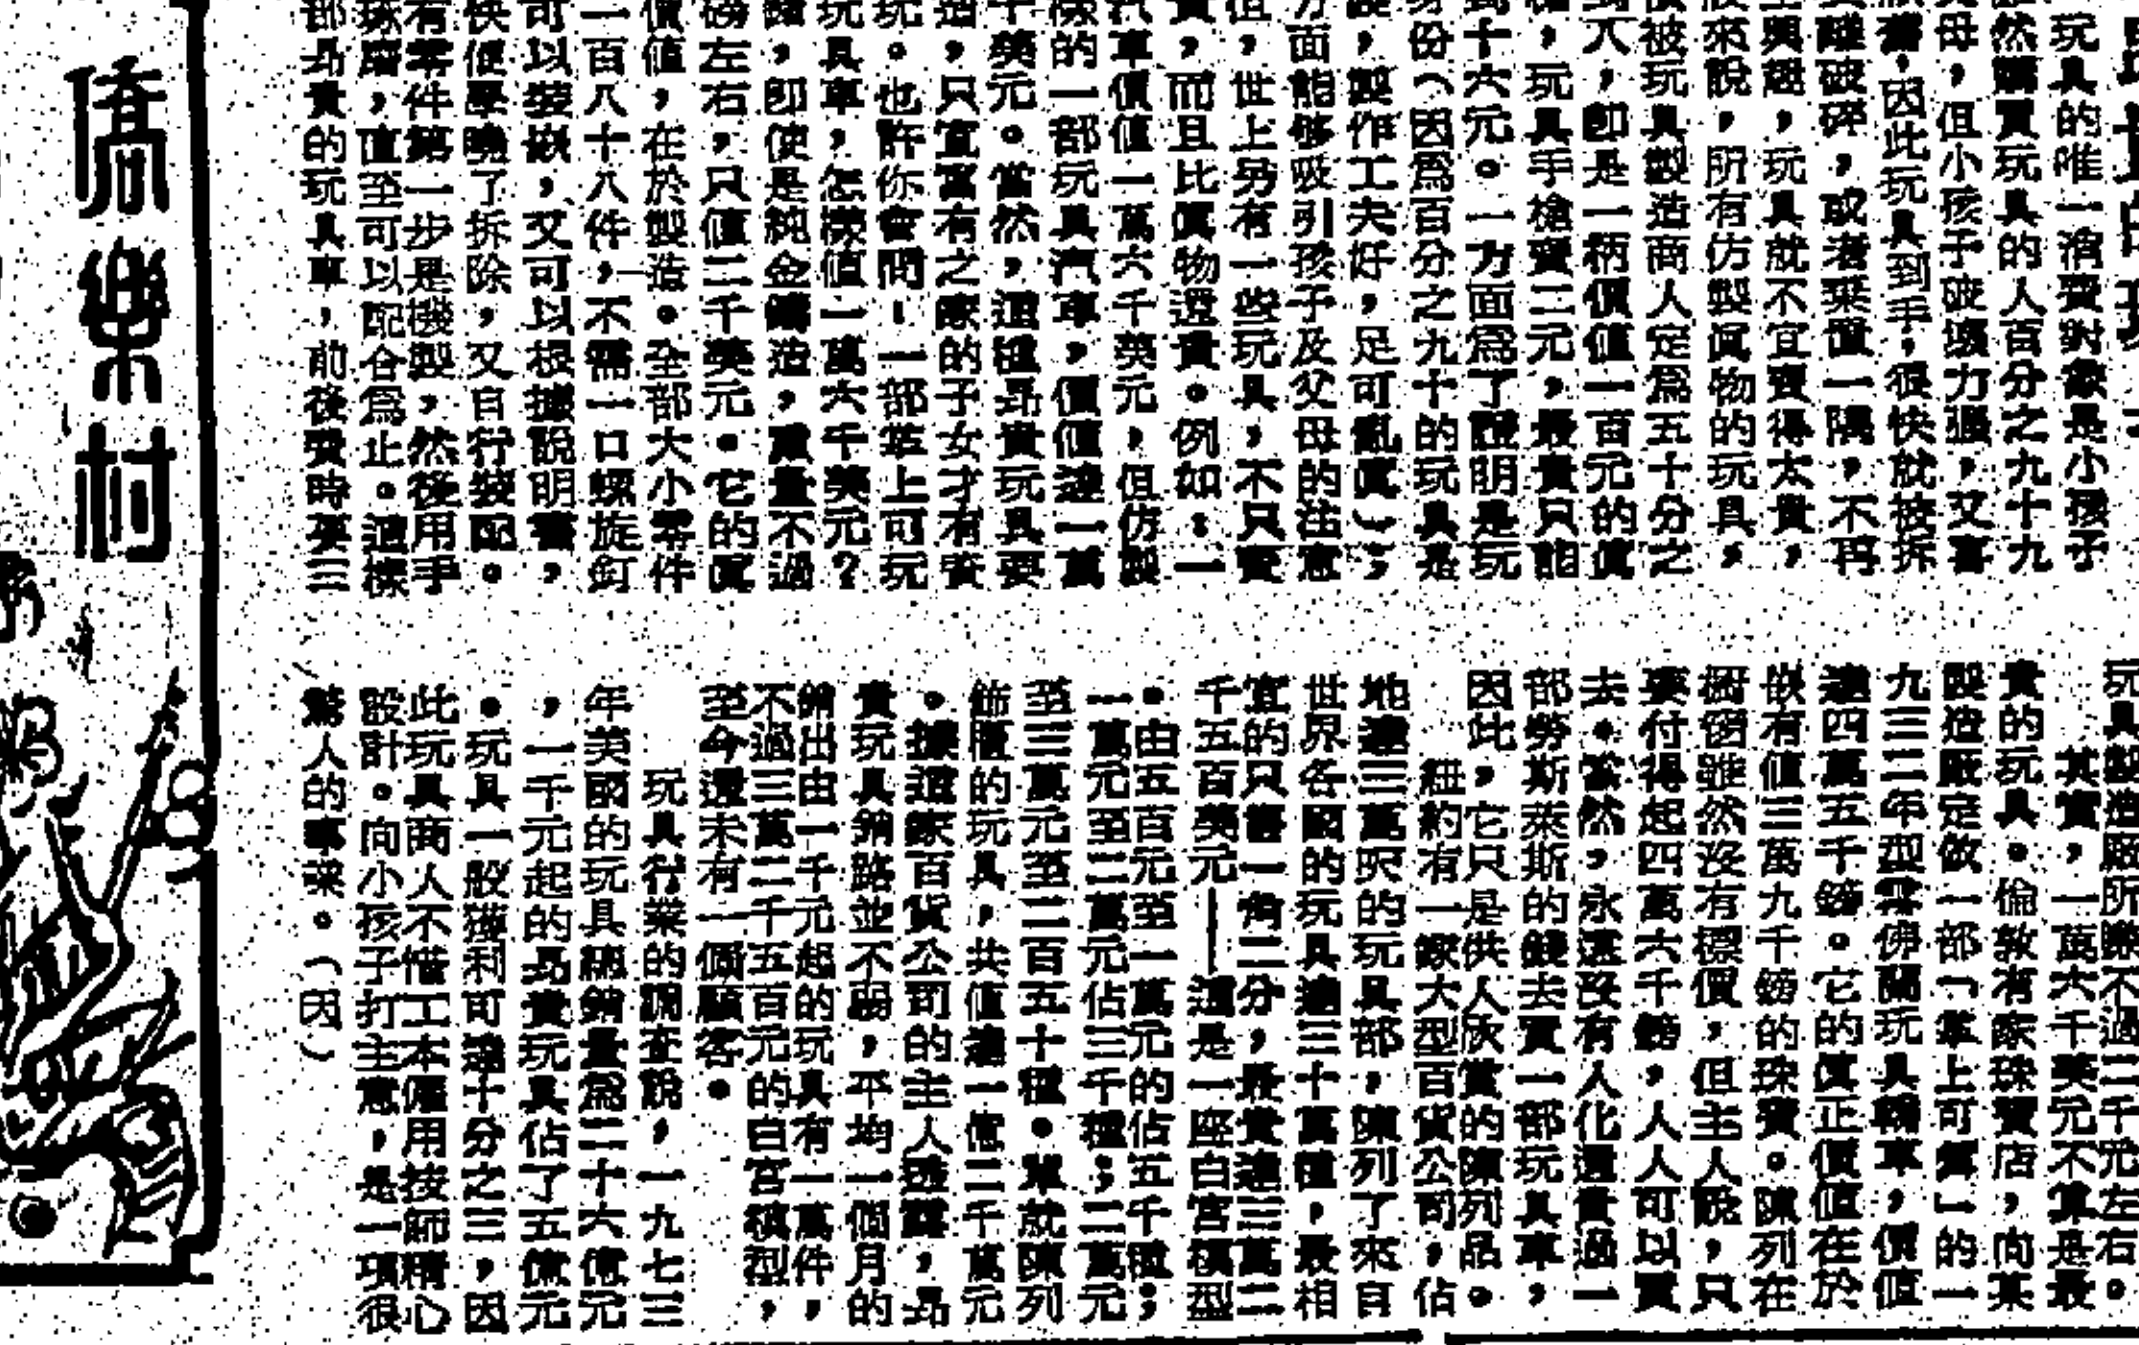 玩具的唯一消費對象是小孩子
然購買玩具的人百分之九十九
母,但小孩子破壞力強,又喜
舊,因此玩具到手,很快就被拆
雖破碎,或者棄置一隅,不再
興趣,玩具就不宜賣得太貴,
來說,所有仿製眞物的玩具,
被玩具製造商人定爲五十分之
,即是一柄價値一百元的眞
,玩具手槍賣二元,最貴只能
十六元。一方面爲了證明是玩
份(因爲百分之九十的玩具是
,製作工夫好,足可亂眞);
面能够吸引孩子及父母的注意
,世上另有一些玩具,不只賣
,而且比眞物還貴。例如:一
汽車價値一萬六千美元,但仿製
樣的一部玩具汽車,價値達一萬
千美元。當然,這種昂貴玩具要
造,只宜富有之家的子女才有資
玩。也許你會問!一部掌上可玩
玩具車,怎樣値一萬六千美元?
,即使是純金鑄造,重量不過
磅左右,只値二千美元。它的眞
價値,在於製造。全部大小零件
一百八十八件,不需一口螺旋釘
可以裝嵌,又可以根據說明書,
快便學曉了拆除,又自行裝配。
有零件第一步是機製,然後用手
琢磨,直至可以配合爲止。這樣
部昂貴的玩具車,前後費時要三
玩具製造廠所賺不過二千元左右。
其實,一萬六千美元不算是最
貴的玩具。倫敦有家珠寶店,向某
製造廠定做一部「掌上可舞」的一
九三二年型雲佛蘭玩具轎車,價値
達四萬五千鎊。它的眞正價値在於
嵌有値三萬九千鎊的珠寶。陳列在
橱窗雖然沒有標價,但主人說,只
要付得起四萬六千鎊,人人可以買
去。當然,永遠沒有人化過貴過一
部勞斯萊斯的錢去買一部玩具車,
因此,它只是供人欣賞的陳列品。
紐約有一家大型百貨公司,佔
地達三萬呎的玩具部,陳列了來自
世界各國的玩具達三十萬種,最相
宜的只售一角二分,最貴達三萬二
千五百美元——這是一座白宮模型
。由五百元至一萬元的佔五千種;
一萬元至二萬元佔三千種;二萬元
至三萬元至二百五十種。單就陳列
飾櫃的玩具,共値達一億二千萬元
。據這家百貨公司的主人透露,昂
貴玩具銷路並不弱,平均一個月的
銷出由一千元起的玩具有一萬件,
不過三萬二千五百元的白宮模型,
至今還未有一個顧客。
玩具行業的調查說,一九七三
年美國的玩具總銷量爲二十六億元
,一千元起的昂貴玩具佔了五億元
。玩具一般獲利可達十分之三,因
此玩具商人不惜工本僱用技師精心
設計。向小孩子打主意,是一項很
驚人的事業。(因)
僑樂村